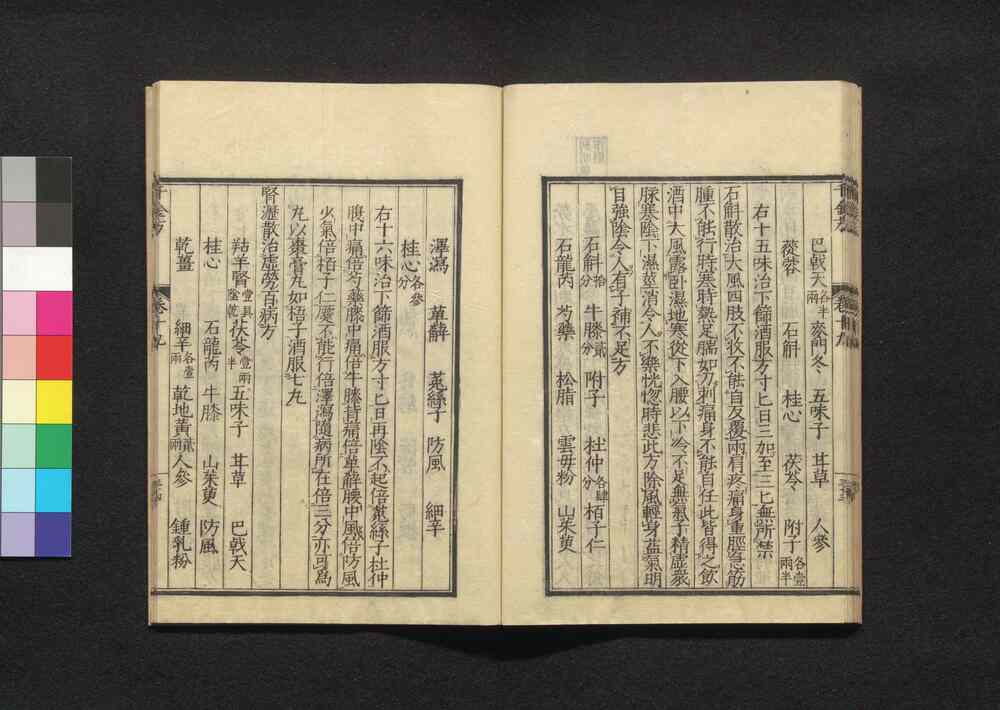 巴戟天 麥門冬各半兩 五味子 甘草 人參
蓯蓉 石斛 桂心 茯苓 附子各壹兩半
右十五味治下篩酒服方寸匕日三加至三匕無所禁
石斛散治大風四肢不收不能自反覆兩肩疼痛身重脛急筋
腫不能行時寒時熱足腨如刀刺痛身不能自任此皆得之飲
酒中大風露臥濕地寒從下入腰以下冷不足無氣子精虛衆
脉寒陰下濕莖消令人不樂恍惚時悲此方除風輕身益氣明
目強陰令人有子補不足方
石斛拾分 牛膝貳分 附子 杜仲各肆分 栢子仁
石龍芮 芍藥 松脂 雲母粉 山茱萸
澤瀉 萆薢 菟絲子 防風 細辛
桂心各參分
右十六味治下篩酒服方寸匕日再陰不起倍菟絲子杜仲
腹中痛倍芍藥膝中痛倍牛膝背痛倍萆薢腰中風倍防風
少氣倍栢子仁蹷不能行倍澤瀉隨病所在倍三分亦可爲
丸以棗膏丸如梧子酒服七丸
腎瀝散治虛勞百病方
羖羊腎壹具陰乾 茯苓壹兩半 五味子 甘草 巴戟天
桂心 石龍芮 牛膝 山茱萸 防風
乾薑 細辛各壹兩 乾地黃貳兩 人參 鍾乳粉